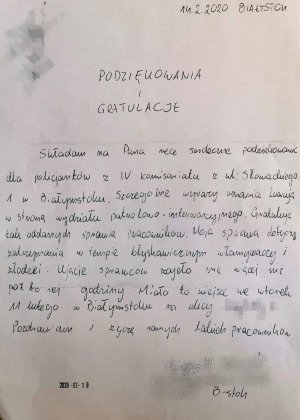 14.2.2020 BIAŁYSTOK
PODZIĘKOWANIA
i
GRATULACJE
Składam na Pana ręce serdeczne podziękowania
dla policjantów z IV komisariatu z ul. Słowackiego
1 w Białymstoku. Szczególne wyrazy uznania kieruję
w stronę wydziału patrolowo-interwencyjnego. Gratuluję
tak oddanych sprawie pracowników. Moja sprawa dotyczy
zatrzymania w tempie błyskawicznym włamywaczy i
złodziei. Ujęcie sprawców zajęło nie więcej niż
pół tej godziny. Miało to miejsce we wtorek
11 lutego w Białymstoku na ulicy
Pozdrawiam i życzę samych takich pracowników
2020-02-19
B-stok